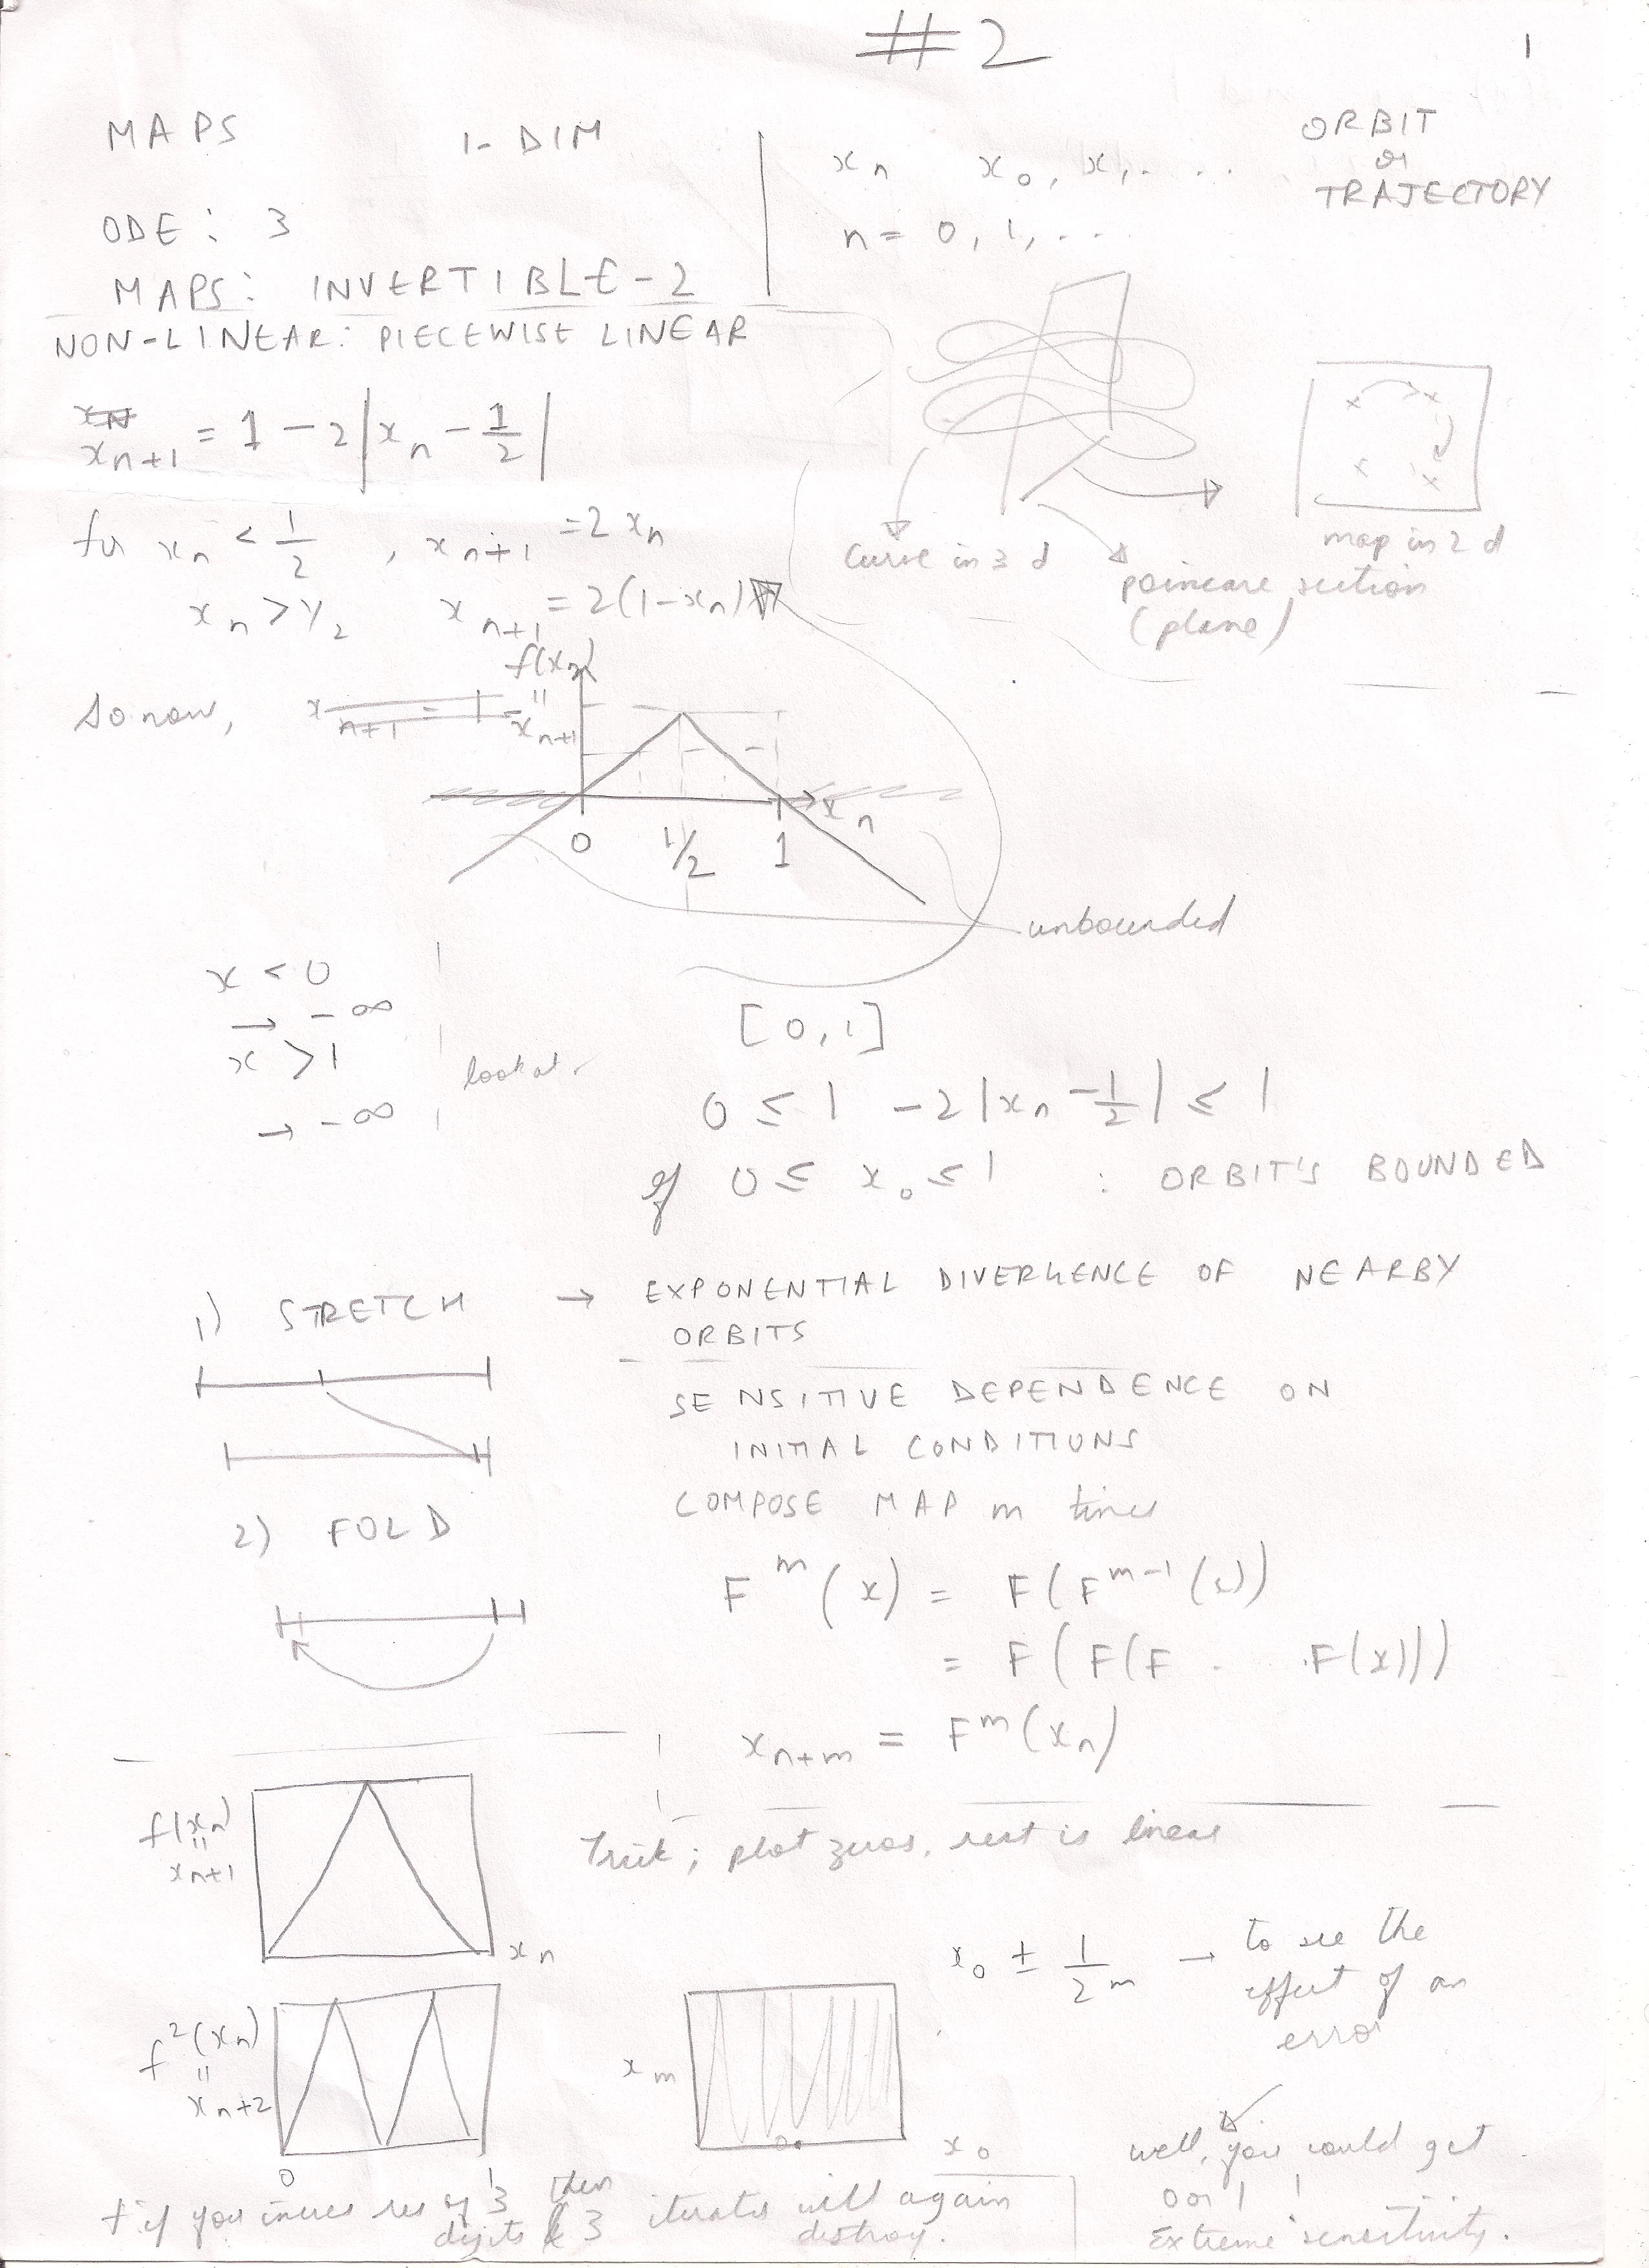 #2
1
MAPS 1-DIM
ODE: 3
MAPS: INVERTIBLE-2
x_n x_0, x_1, . . . .
n = 0, 1, . . .
ORBIT
or
TRAJECTORY
NON-LINEAR: PIECEWISE LINEAR
x_{n+1} = 1 - 2|x_n - 1/2|
for x_n < 1/2 , x_{n+1} = 2x_n
x_n > 1/2 x_{n+1} = 2(1-x_n)
curve in 3 d
poincare section
(plane)
map in 2 d
So now,
x_{n+1} = 1 -
f(x_n)
"
x_{n+1}
x_n
0 1/2 1
unbounded
x < 0
→ -∞
x > 1
→ -∞
look at
[0,1]
0 ≤ 1 - 2|x_n - 1/2| ≤ 1
if 0 ≤ x_0 ≤ 1 : ORBIT'S BOUNDED
1) STRETCH → EXPONENTIAL DIVERGENCE OF NEARBY
ORBITS
SENSITIVE DEPENDENCE ON
INITIAL CONDITIONS
2) FOLD
COMPOSE MAP m times
F^m(x) = F(F^{m-1}(x))
= F(F(F . . F(x)))
x_{n+m} = F^m(x_n)
f(x_n)
"
x_{n+1}
x_n
Trick; plot zeros, rest is linear
f^2(x_n)
"
x_{n+2}
0 1
x_m
x_0
x_0 ± 1/2^m → to see the
effect of an
error
well, you could get
0 or 1 !
Extreme sensitivity.
+ if you increase res by 3 then
digits 3 iterates will again
destroy.